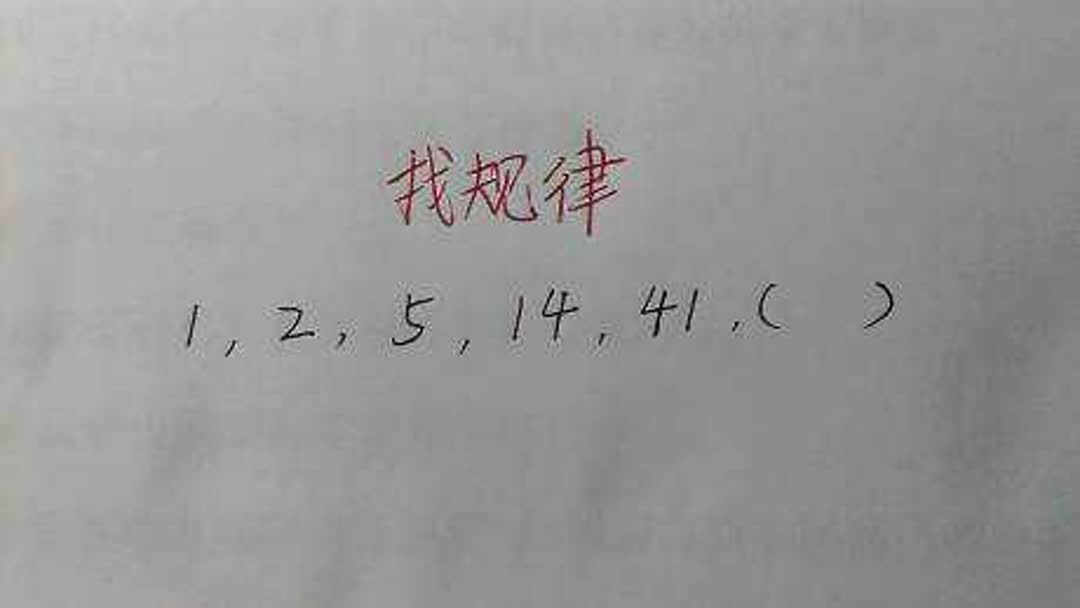 找规律
1, 2, 5, 14, 41, (    )